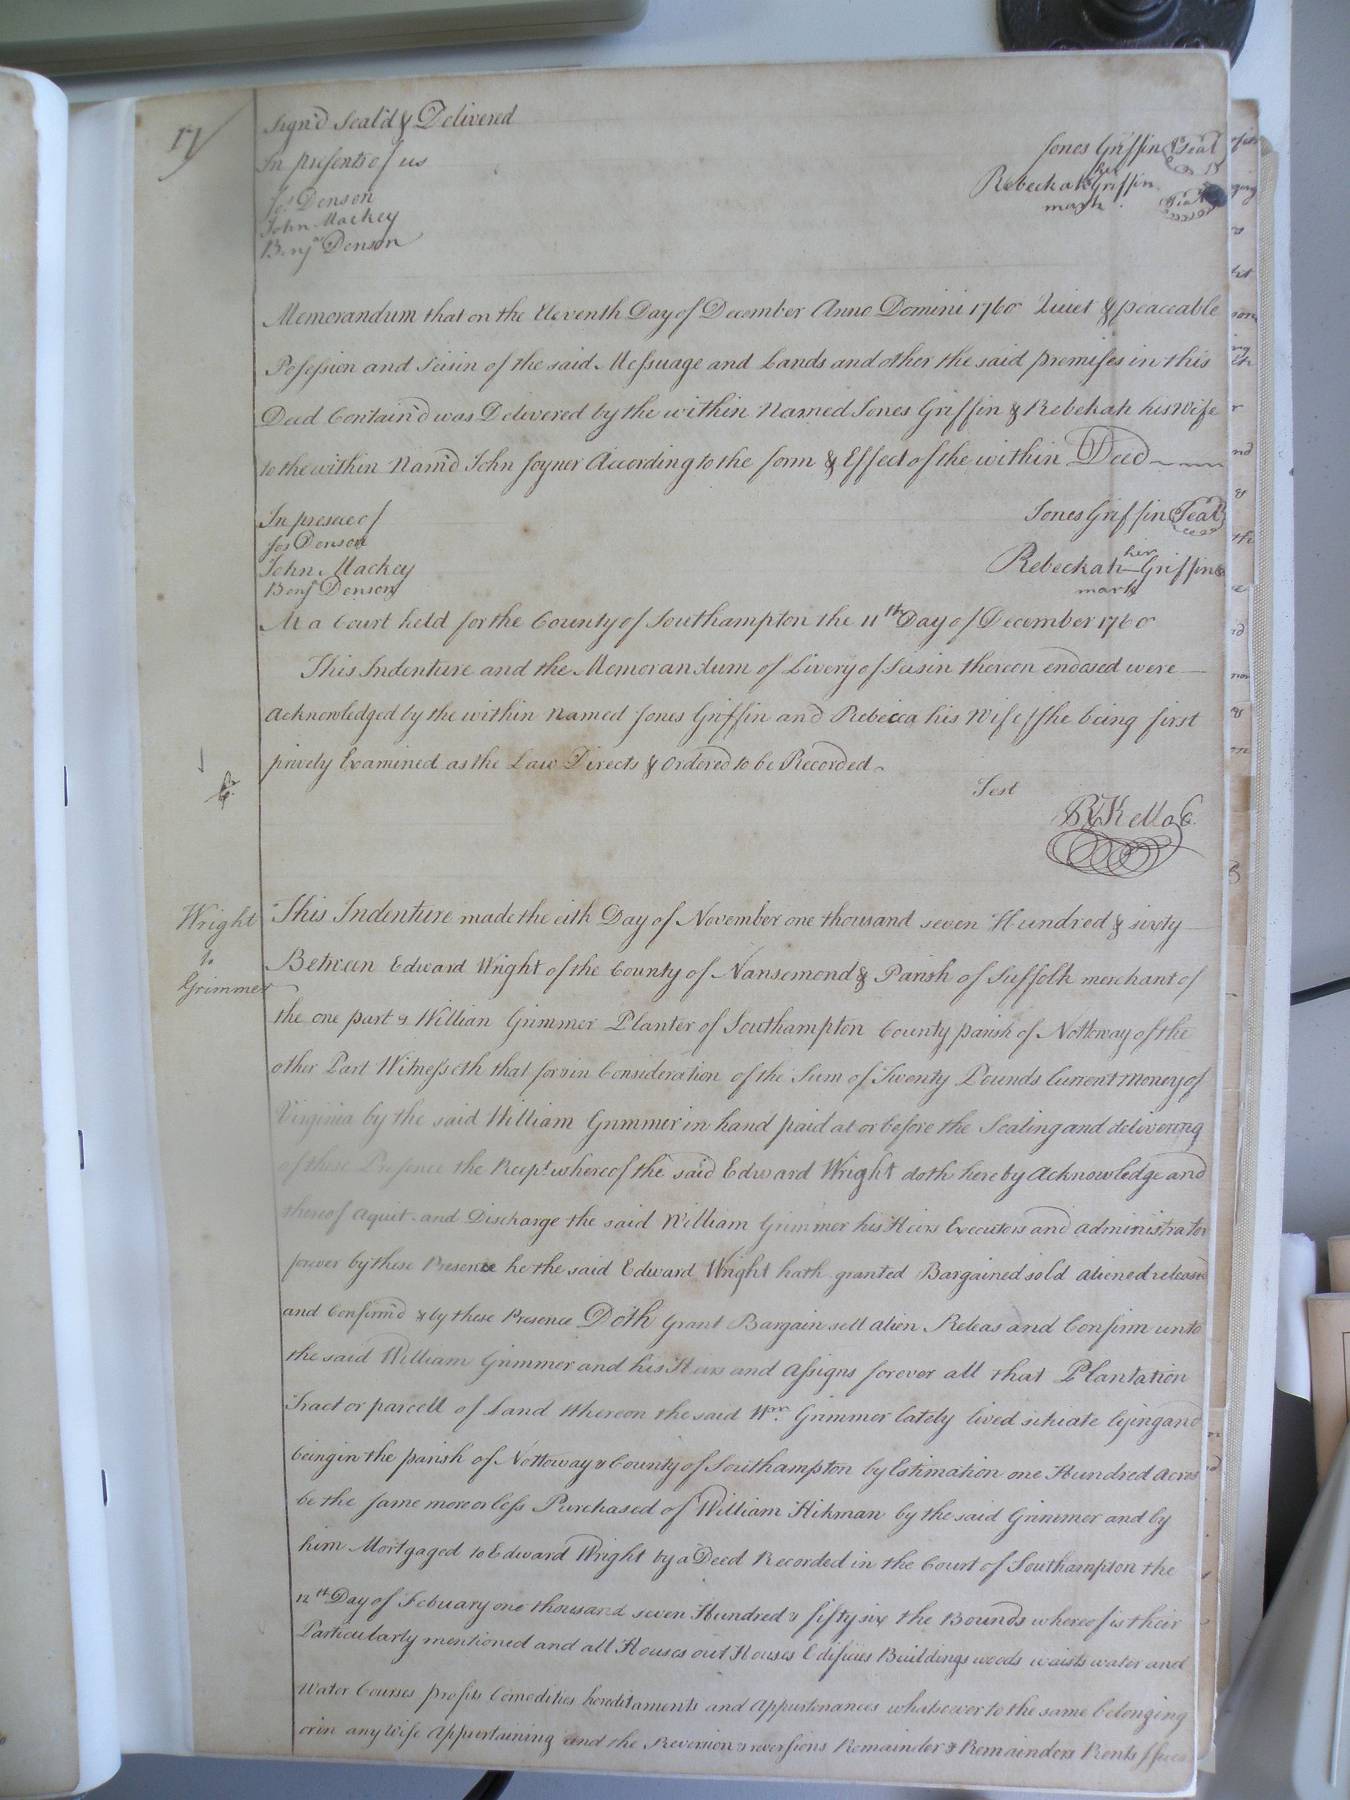 17
Sign'd Seal'd & Delivered
In presents of us
Jos Denson
John Mackey
Benja Denson
Jones Griffin Seal
her
Rebeckah Griffin Seal
mark
Memorandum that on the Eleventh Day of December Anno Domini 1760 Quiet & peaceable
Posession and Seisin of the said Messuage and Lands and other the said premises in this
Deed Contain'd was Delivered by the within Named Jones Griffin & Rebekah his Wife
to the within Nam'd John Joyner According to the form & Effect of the within Deed
In presece of
Jos Denson
John Mackey
Benja Denson
Jones Griffin Seal
her
Rebeckah Griffin
mark
At a Court held for the County of Southampton the 11th Day of December 1760
This Indenture and the Memorandum of Livery of Seisin thereon endosed were
Acknowledged by the within Named Jones Griffin and Rebecca his Wife she being first
prively Examined as the Law Directs & Ordered to be Recorded
Test
R Kello C.
Wright
to
Grimmer
This Indenture made the eith Day of November one thousand seven Hundred & sixty
Between Edward Wright of the County of Nansemond & Parish of Suffolk merchant of
the one part & Willian Grimmer Planter of Southampton County parish of Nottoway of the
other Part Witnesseth that for & in Consideration of the Sum of Twenty Pounds Current Money of
Virginia by the said William Grimmer in hand paid at or before the Sealing and delivering
of these Presence the Recept whereof the said Edward Wright doth hereby Acknowledge and
thereof aquit and Discharge the said William Grimmer his Heirs Executors and administrator
forever by these Presence he the said Edward Wright hath granted Bargained sold aliened released
and Confirm'd & by these Presence Doth Grant Bargain sell alien Releas and Confirm unto
the said William Grimmer and his Heirs and Assigns forever all that Plantation
Tract or parcell of Land thereon the said Wm. Grimmer lately lived sitiate lying and
being in the parish of Nottoway & County of Southampton by Estimation one Hundred acres
be the same more or less Purchased of William Hikman by the said Grimmer and by
him Mortgaged to Edward Wright by a Deed Recorded in the Court of Southampton the
12th Day of Febuary one thousand seven Hundred & fifty six the Bounds whereof is their
Particularly mentioned and all Houses out Houses Edificies Buildings woods waists water and
Water Courses profits Comodities hereditaments and Appurtenances whatsoever to the same belonging
or in any wise Appurtaining and the Reversion & reversions Remainder & Remainders Rents